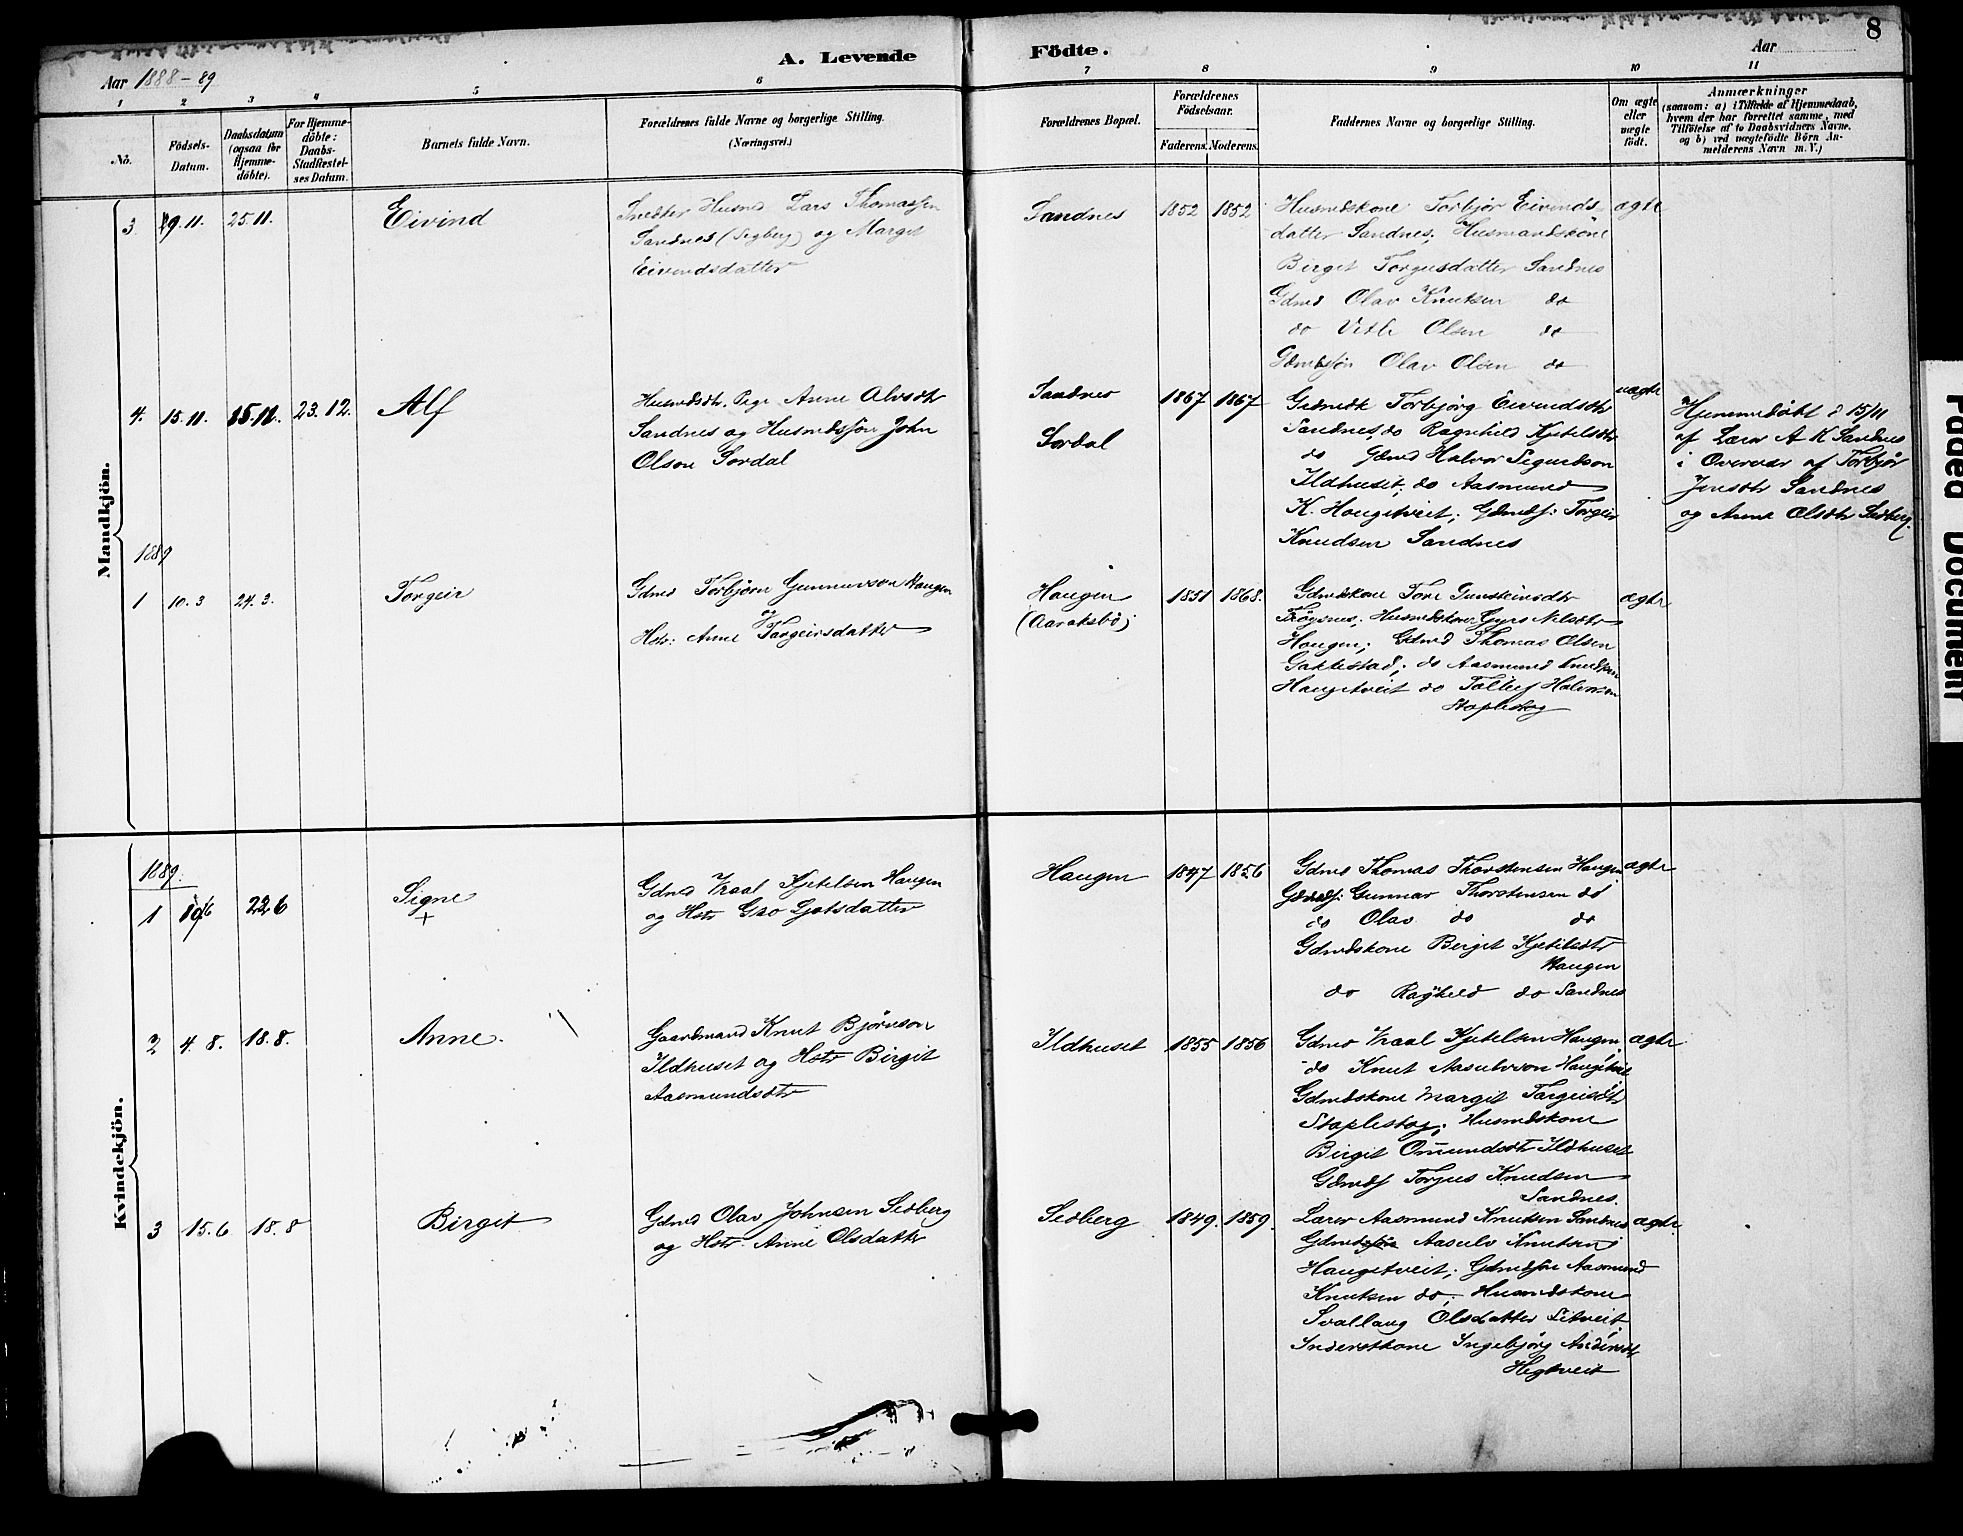 8
A. Levende Födte.
Aar 1888-89
Aar
1 2 3 4 5 6 7 8 9 10 11
No.
Födsels-Datum.
Daabsdatum (ogsaa for Hjemme-döbte).
For Hjemme-döbte: Daabs-Stadfæstel-ses Datum.
Barnets fulde Navn.
Forældrenes fulde Navne og borgerlige Stilling.
(Næringsvei.)
Forældrenes Bopæl.
Forældrenes Födselsaar.
Faderens. Moderens.
Faddernes Navne og borgerlige Stilling.
Om ægte eller uægte födt.
Anmærkninger
(saasom: a) i Tilfælde af Hjemmedaab,
hvem der har forrettet samme, med
Tilföielse af to Daabsvidners Navne,
og b) ved uægtefödte Börn An-
melderens Navn m. V.)
Mandkjön.
3 9.11. 25.11. Eivind
Snedker Husmd Lars Thomassen
Sandnes og Margit
Eivindsdatter
Sandnes 1852 1852
Husmdskone Torbjør Eivinds-
datter Sandnes; Husmandskone
Birget Torgusdatter Sandnes
Gdmd Olav Knutsen do
do Vetle Olsen do
Gdmdsøn Olav Olsen do
ægte
4. 15.11. 15.11. 23.12. Alf
Husmdsdtr. Pige Anne Alvsdtr
Sandnes og Husmdssøn John
Olson Sordal
Sandnes
Sordal
1867 1867
Gdmdk Torbjørg Eivindsdtr
Sandnes, do Ragnhild Kjetelsdtr
do Gdmd Halvor Sigurdson
Ildhuset; do Aasmund
K. Haugetveit; Gdmds: Torgeir
Knudsen Sandnes
uægte
Hjemmedøbt d 15/11
af Lærer A K Sandnes
i Overvær af Torbjør
Jensdtr Sandnes
og Anne Olsdtr Sedberg.
1889
1 10.3 24.3. Torgeir
Gdmd Torbjørn Gunnarson Haugen
og
Hstr: Anne Targeirsdatter
Haugen
(Aaraksbø)
1851 1868.
Gdmdskone Tore Gunsteinsdtr
Frøysnes; Husmdskone Gyro Nilsdtr
Haugen; Gdmd Thomas Olsen
Gakkestad; do Aasmund Knudsen
Haugetveit do Tallef Halvorson
Stapleskog
ægte
Kvindekjön.
1889.
1 22 6 Signe
+
Gdmd Vraal Kjetelsen Haugen
og Hstr Gro Gjetsdatter
Haugen 1847 1856
Gdmd Thomas Thorstensen Haugen
Gdmdss: Gunnar Thorstensen do
do Olav do do
Gdmdskone Berget Kjetilsdtr
Haugen
do Raghild do Sandnes
ægte
2 4. 8. 18.8. Anne.
Gaardmand Knut Bjørnson
Ildhuset og Hstr Birgit
Aasmundsdtr
Ildhuset 1855 1856
Gdmd Vraal Kjetelsen Haugen
do Knut Aasulvson Haugetveit
Gdmdskone Margit Targeisdtr
Stapleskog; Husmdskone
Birgit Omundsdtr Ildhuset
Gdmds Torjus Knudsen
Sandnes.
ægte
3 15.6 18.8 Birgit
Gdmd Olav Johnsen Sedberg
og Hstr. Anne Olsdatter
Sedberg 1849. 1859.
Lærer Aasmund Knutsen Sandnes
Gdmd Aasulv Knutsen
Haugetveit; Gdmdsøn Aasmund
Knutsen do; Husmdskone
Svallaug Olsdatter Litveit
Inderstkone Ingebjørg
Hegtveit
ægte
Faded Document